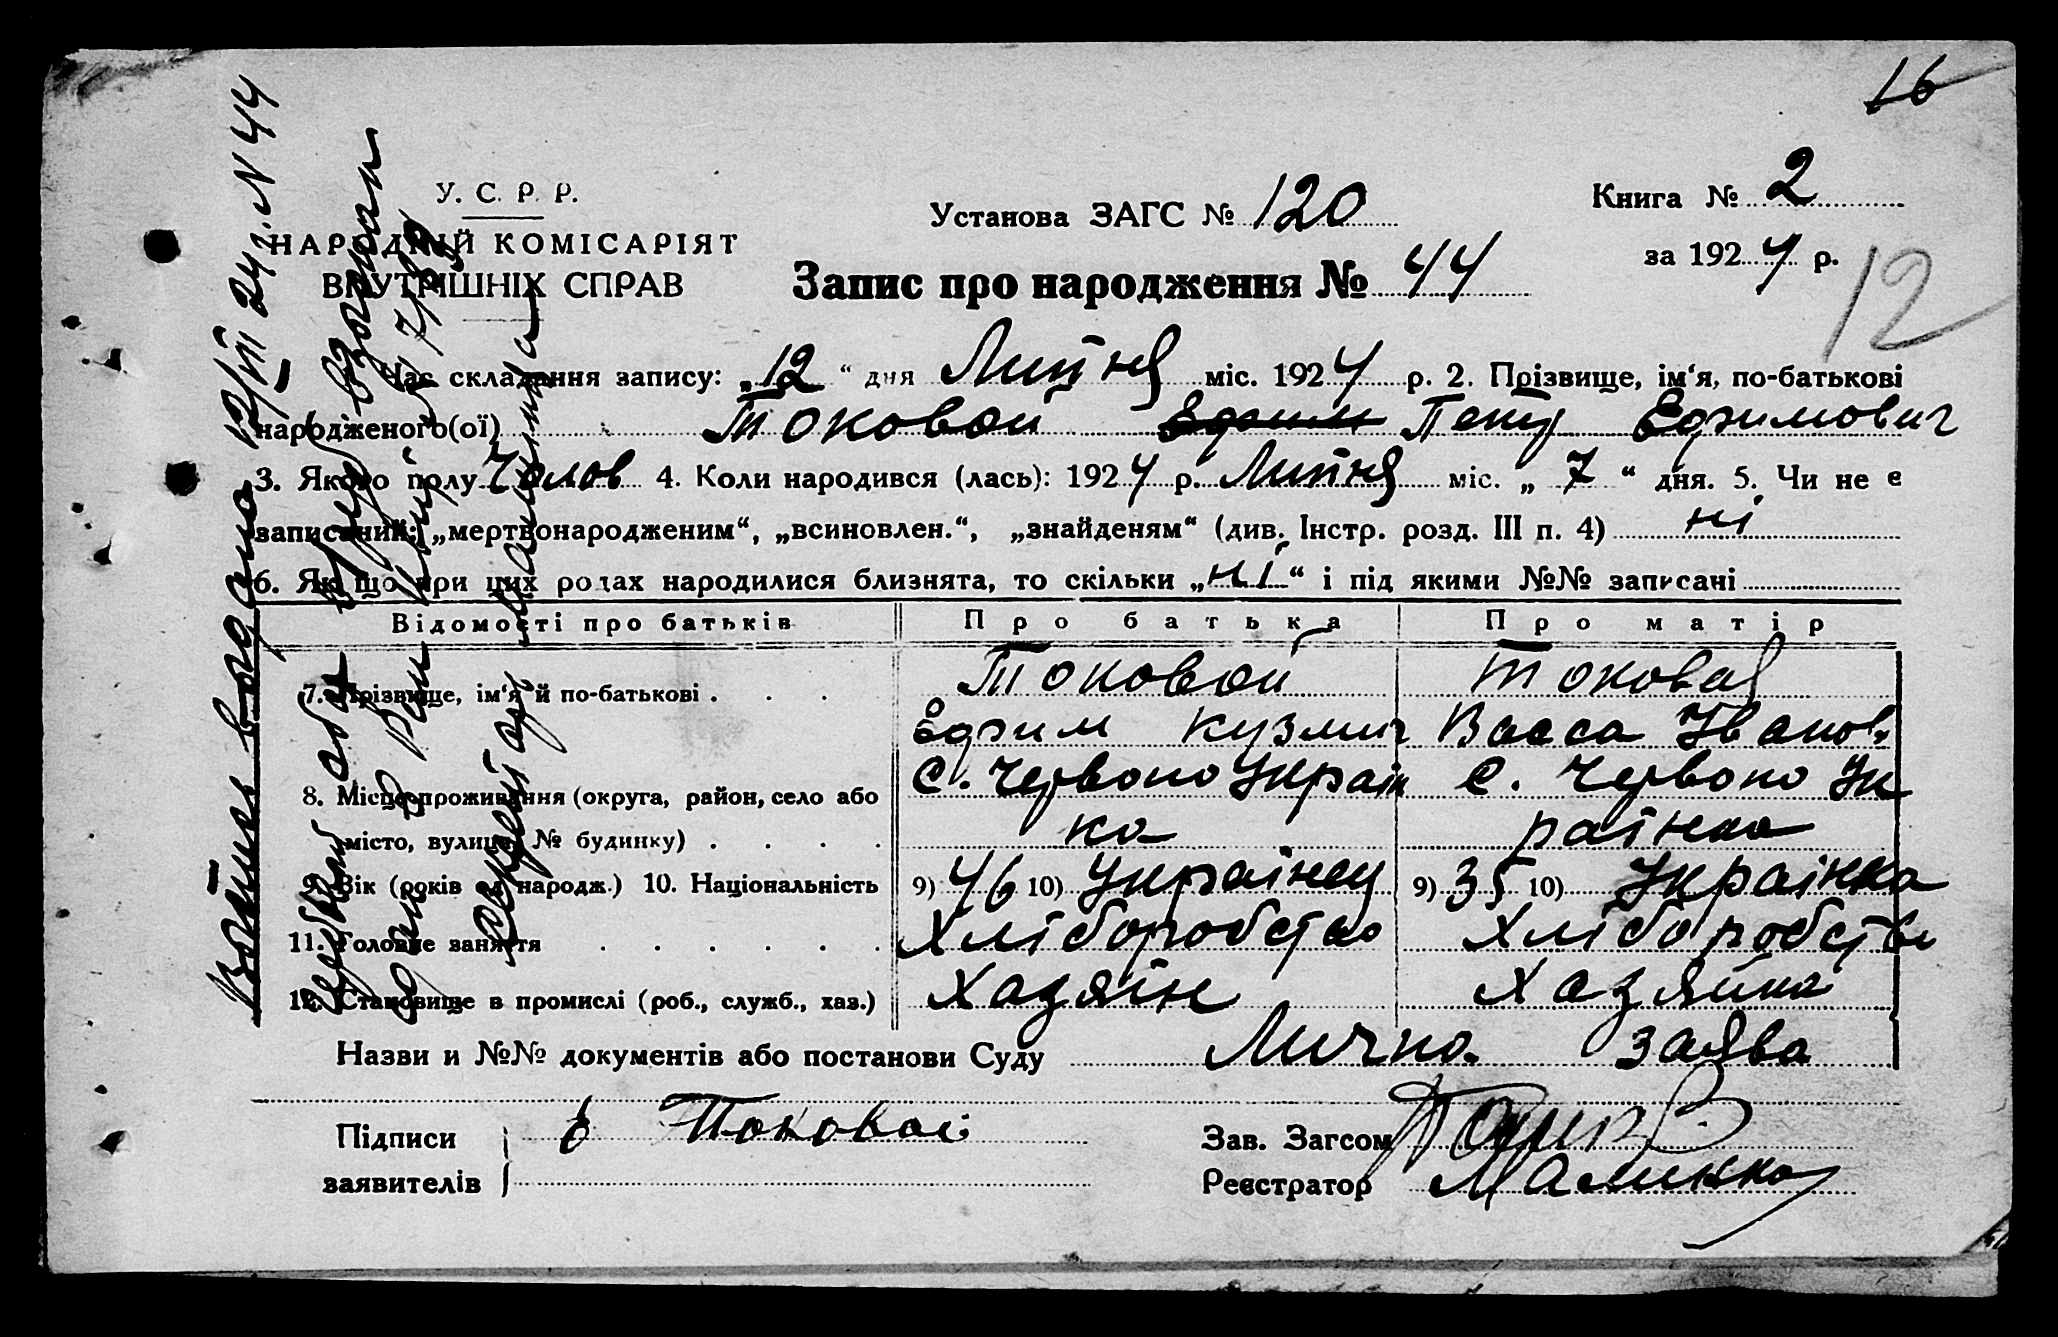 16
У. С. Р. Р.
НАРОДНІЙ КОМІСАРІЯТ
ВНУТРІШНІХ СПРАВ
Установа ЗАГС № 120
Книга № 2
за 1924 р.
12
Запис про народження № 44
Час складання запису: „12“ дня Липня міс. 1924 р. 2. Прізвище, ім‘я, по-батькові
народженого(ої) Токовой Ефим Петр Ефимович
3. Якого полу Чолов 4. Коли народився (лась): 1924 р. Липня міс. „7“ дня. 5. Чи не є
записаний: „мертвонародженим“, „всиновлен.“, „знайденям“ (див. Інстр. розд. III п. 4) ні
6. Як що при цих родах народилися близнята, то скільки „ні“ і під якими №№ записані
Відомості про батьків Про батька Про матір
7. Прізвище, ім‘я й по-батькові . . . Токовой Токовая
Ефим Кузмич Васса Іванов.
8. Місце проживання (округа, район, село або С. Червоно Украін С. Червоно Ук
місто, вулиця, № будинку) . . . . ка раінка
9. Вік (років од народж.) 10. Національність 9) 46 10) Украінец 9) 35 10) Украінка
11. Головне заняття . . . . . . Хліборобство Хліборобство
12. Становище в промислі (роб., служб., хаз.) Хазяін Хазяйка
Назви и №№ документів або постанови Суду Лично заява
Підписи Е Токовой Зав. Загсом
заявителів Реєстратор Малинка
12/VII 24 р. N 44